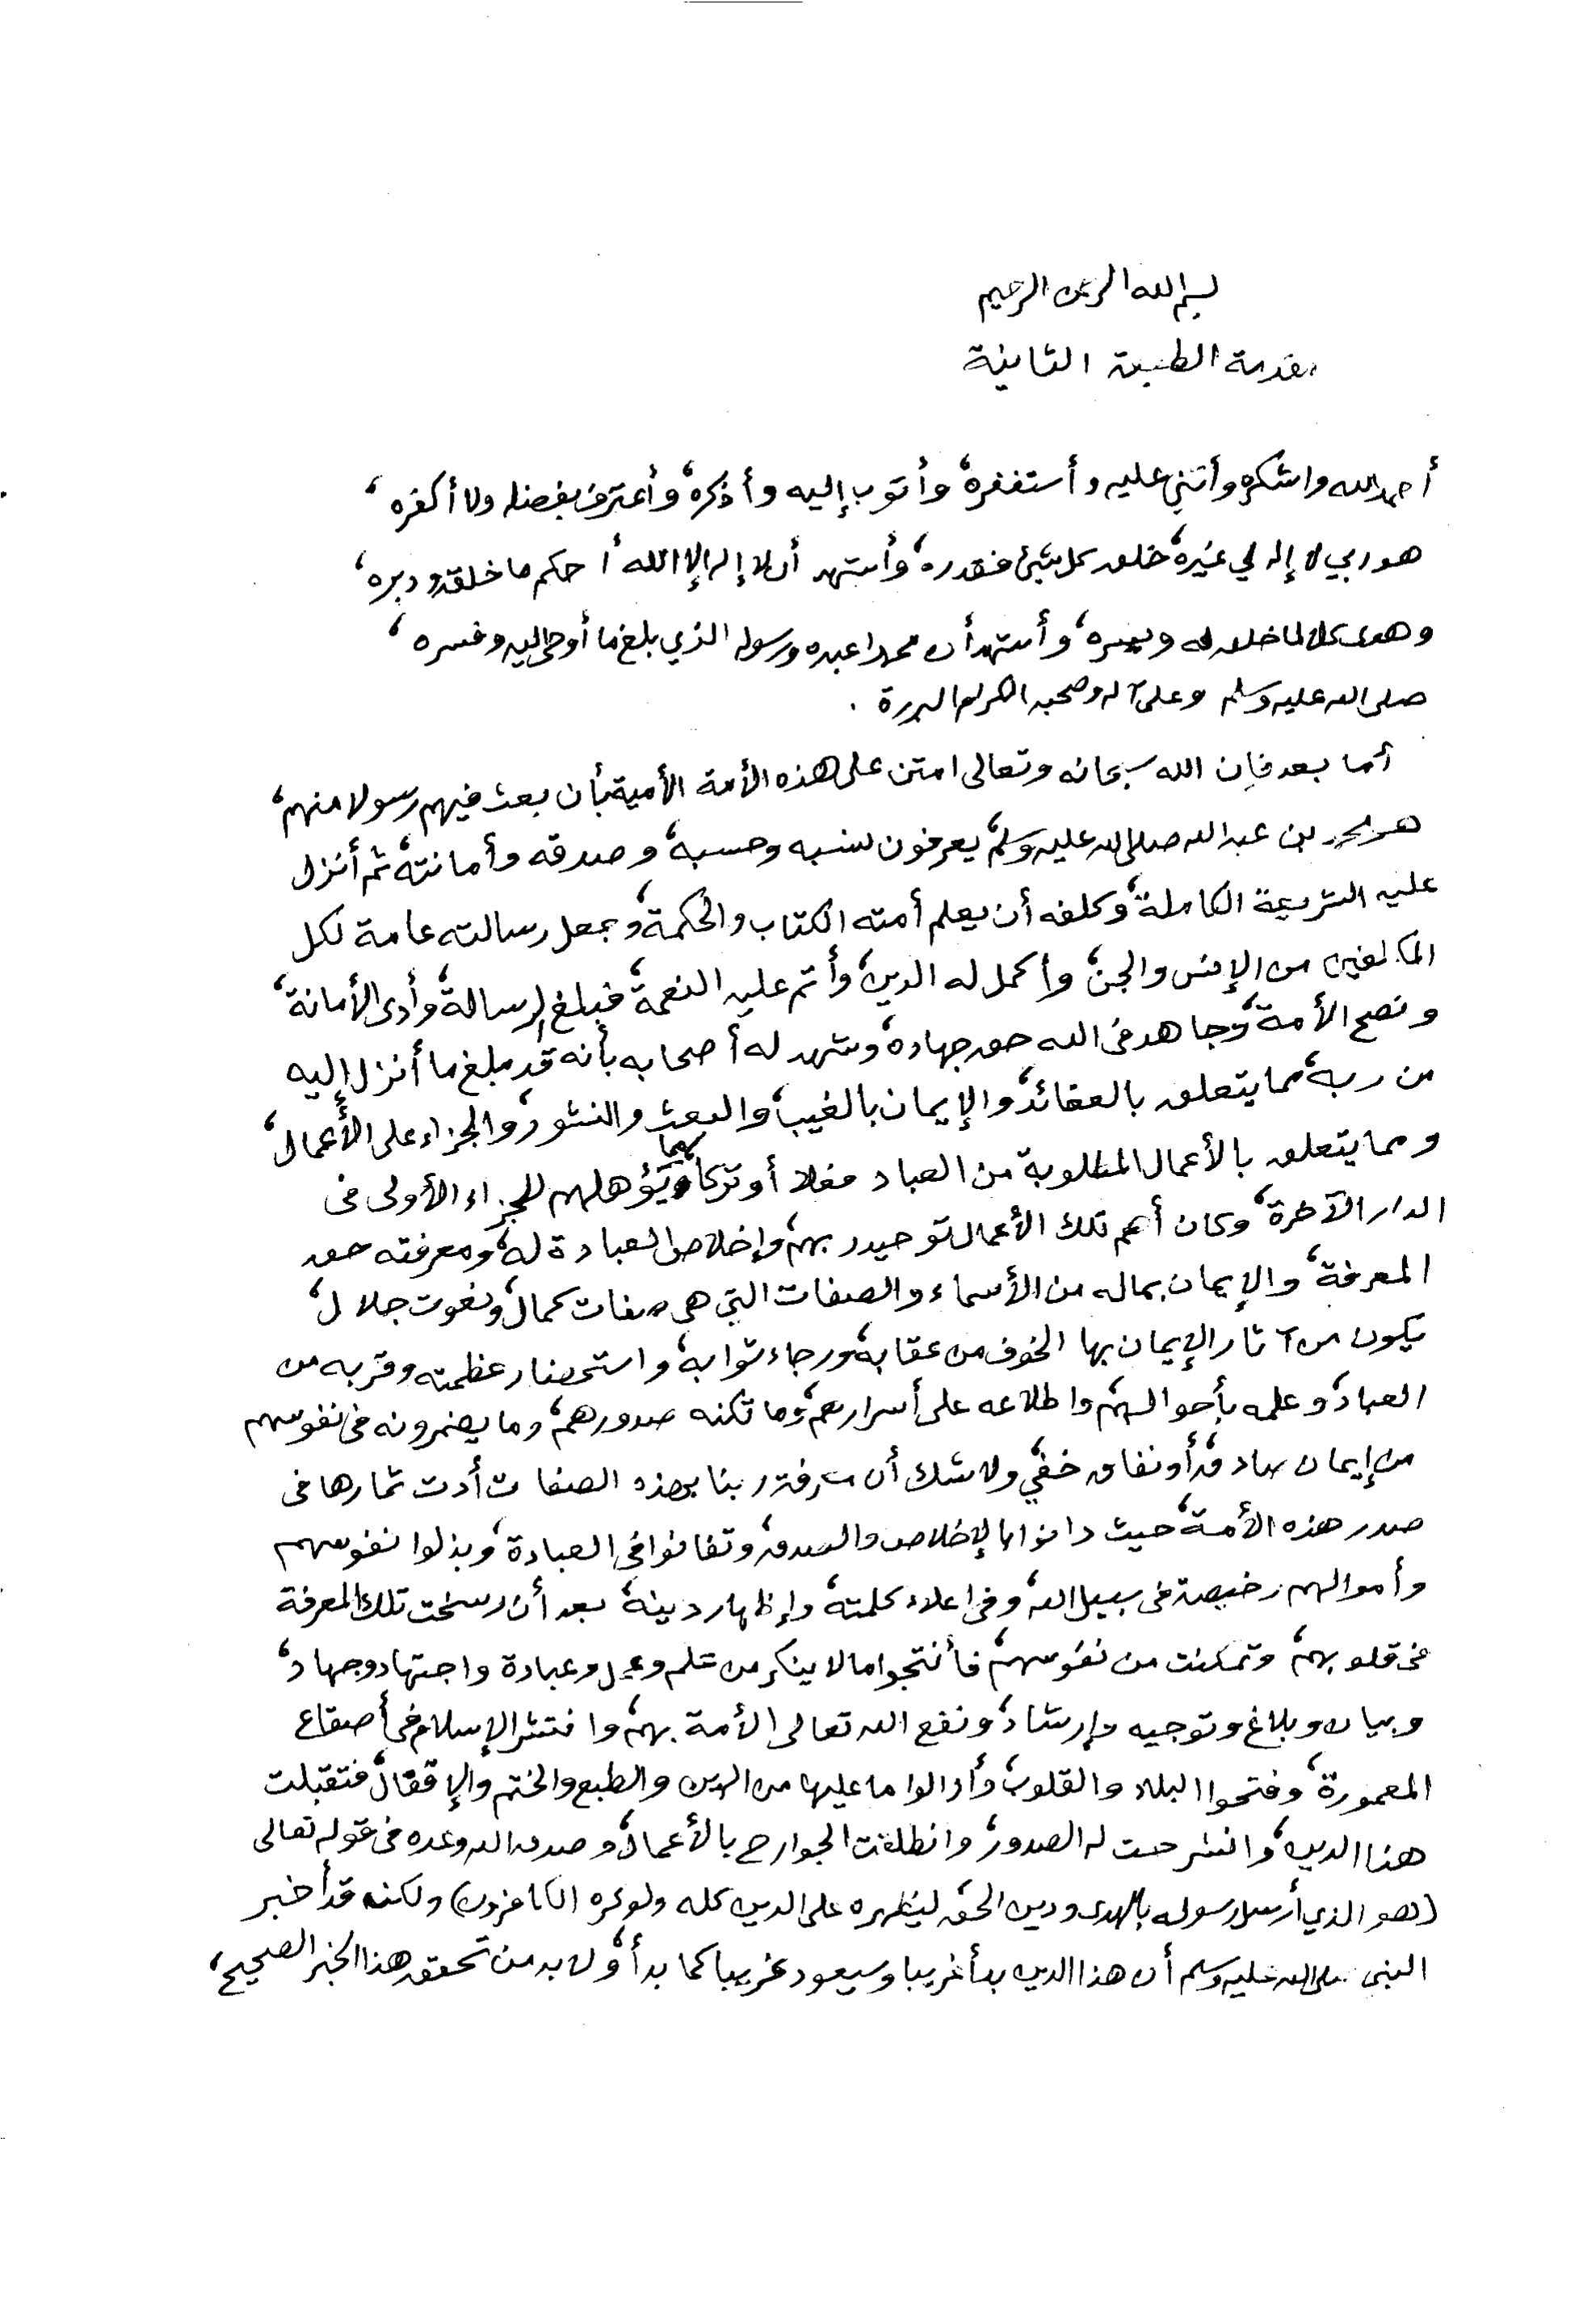 بسم الله الرحمن الرحيم
مقدمة الطبعة الثانية
أحمد الله وأشكره وأثني عليه وأستغفره، وأتوب إليه وأذكره، وأعترف بفضله ولا أكفره،
هو ربي لا إله لي غيره، خلق كل شيئ فقدره، وأشهد أن لا إله إلا الله، أحكم ما خلقه ودبره،
وهدى كلا لما خلق له ويسره، وأشهد أن محمدا عبده ورسوله الذي بلغ ما أوحي إليه وفسره،
صلى الله عليه وسلم وعلى آله وصحبه الكرام البررة .
أما بعد فإن الله سبحانه وتعالى امتن على هذه الأمة الأمية بأن بعث فيهم رسولا منهم،
هو محمد بن عبد الله صلى الله عليه وسلم، يعرفون نسبه وحسبه، وصدقه وأمانته، ثم أنزل
عليه الشريعة الكاملة، وكلفه أن يعلم أمته الكتاب والحكمة، وجعل رسالته عامة لكل
المكلفين من الإنس والجن، وأكمل له الدين، وأتم عليه النعمة، فبلغ الرسالة، وأدى الأمانة،
ونصح الأمة، وجاهد في الله حق جهاده، وشهد له أصحابه بأنه قد بلغ ما أنزل إليه
من ربه، مما يتعلق بالعقائد، والإيمان بالغيب، والبعث والنشور، والجزاء على الأعمال،
ومما يتعلق بالأعمال المطلوبة من العباد فعلا أو تركا، مما يؤهلهم للجزاء الأولى في
الدار الآخرة، وكان أهم تلك الأعمال توحيد ربهم، وإخلاص العبادة له، ومعرفته حق
المعرفة، والإيمان بما له من الأسماء والصفات التي هي صفات كمال، ونعوت جلال،
يكون من آثار الإيمان بها الخوف من عقابه، ورجاء ثوابه، واستحضار عظمته وقربه من
العباد، وعلمه بأحوالهم، واطلاعه على أسرارهم، وما تكنه صدورهم، وما يضمرونه في نفوسهم
من إيمان صادق، أو نفاق خفي، ولا شك أن معرفة ربنا بهذه الصفات أدت ثمارها في
صدر هذه الأمة، حيث دانوا بالإخلاص والصدق، وتفانوا في العبادة، وبذلوا نفوسهم
وأموالهم رخيصة في سبيل الله، وفي إعلاء كلمته، وإظهار دينه، بعد أن رسخت تلك المعرفة
في قلوبهم، وتمكنت من نفوسهم، فأنتجوا ما لا ينكر من علم وعمل وعبادة واجتهاد وجهاد،
وبيان وبلاغ وتوجيه وإرشاد، ونفع الله تعالى الأمة بهم، وانتشر الإسلام في أصقاع
المعمورة، وفتحوا البلاد والقلوب، وأزالوا ما عليها من الرين والطبع والختم والإقفال، فتقبلت
هذا الدين، وانشرحت له الصدور، وانطلقت الجوارح بالأعمال، وصدق الله وعده في قوله تعالى
(هو الذي أرسل رسوله بالهدى ودين الحق ليظهره على الدين كله ولو كره الكافرون) ولكنه قد أخبر
النبي صلى الله عليه وسلم أن هذا الدين بدأ غريبا وسيعود غريبا كما بدأ، ولا بد من تحقق هذا الخبر الصحيح،